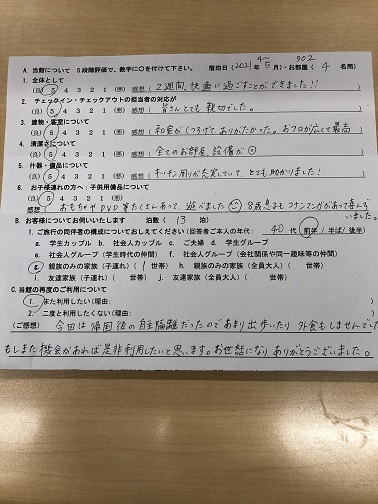 A. 当館について 5段階評価で、数字に○を付けて下さい。 宿泊日(2021年4～5月)・お部屋(902 4名用)
1. 全体として
(良) 5 4 3 2 1 (悪) 感想(2週間、快適に過ごすことができました!!)
2. チェックイン・チェックアウトの担当者の対応が
(良) 5 4 3 2 1 (悪) 感想(皆さんとても親切でした。)
3. 建物・客室について
(良) 5 4 3 2 1 (悪) 感想(和室がくつろげてありがたかった。お風呂が広くて最高)
4. 清潔さについて
(良) 5 4 3 2 1 (悪) 感想(全てのお部屋、設備が◎)
5. 什器・備品について
(良) 5 4 3 2 1 (悪) 感想(キッチン周りが充実していて、とても助かりました!)
6. お子様連れの方へ:子供用備品について
(良) 5 4 3 2 1 (悪)
感想(おもちゃやDVD等たくさんあって、遊べました 8歳息子もコナンマンガがあって喜んで
いました。)
B. お客様についてお伺いいたします 泊数(13泊)
1. ご旅行の同伴者の構成についておしえてください(回答者ご本人の年代: 40代 前半/半ば/後半)
a. 学生カップル b. 社会人カップル c. ご夫婦 d. 学生グループ
e. 社会人グループ(学生時代の仲間) f. 社会人グループ(会社関係や同一趣味等の仲間)
g. 親族のみの家族(子連れ)(1世帯) h. 親族のみの家族(全員大人)( 世帯)
i. 友達家族(子連れ)( 世帯) j. 友達家族(全員大人)( 世帯)
C. 当館の再度のご利用について
1. また利用したい(理由: )
2. 二度と利用したくない(理由: )
(ご感想) 今回は帰国後の自主隔離だったのであまり出歩いたり外食もしませんでした
もしまた機会があれば是非利用したいと思います。お世話になりありがとうございました。